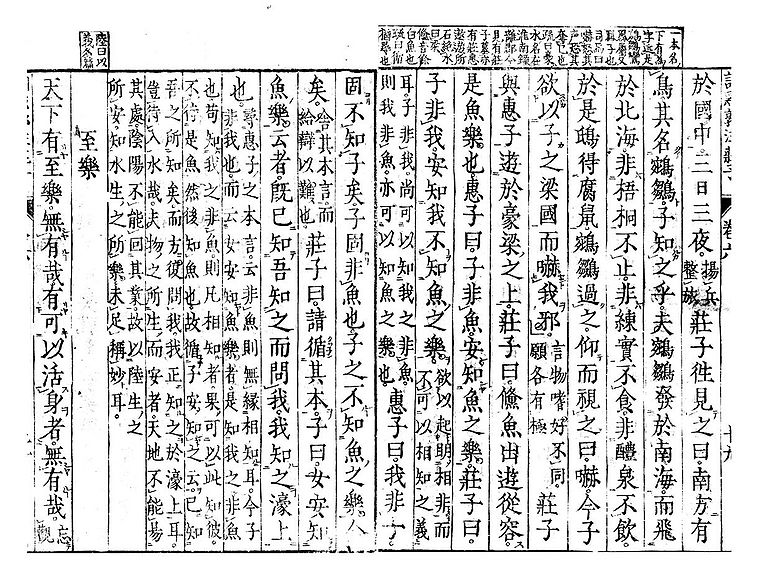 陸曰以
義名篇
於國中。三日三夜。揚兵整旅莊子往見之曰。南方有
鳥其名鵷鶵。子知之乎。夫鵷鶵發於南海。而飛
於北海。非梧桐不止。非練實不食。非醴泉不飲。
於是鴟得腐鼠。鵷鶵過之。仰而視之曰。嚇。今子
欲以子之梁國而嚇我邪。言物嗜好不同。願各有極莊子
與惠子遊於豪梁之上。莊子曰。鯈魚出遊從容
是魚樂也。惠子曰。子非魚。安知魚之樂。莊子曰。
子非我。安知我不知魚之樂。欲以起明相非。而不可以相知之義
耳子非我。尚可以知我之非魚。則我非魚。亦可以知魚之樂也惠子曰。我非子。
固不知子矣。子固非魚也。子之不知魚之樂全
矣。舍其本言。而給辯以難也。莊子曰。請循其本。子曰。女安知
魚樂云者。既已知吾知之而問我。我知之濠上
也。尋惠子之本言。云非魚則無緣相知耳。今子非我也。而云女安知魚樂者。是知我之非魚
也。苟知我之非魚。則凡相知者。果可以此知彼。不待是魚然後知魚也。故循子安知之云。已知
吾之所知矣。而方復問我。我正知之於濠上耳。豈待入水哉。夫物之所生而安者。天地不能易
其處。陰陽不能回其業。故以陸生之所安。知水生之所樂。未足稱妙耳。
至樂
天下有至樂。無有哉。有可以活身者。無有哉。忘觀